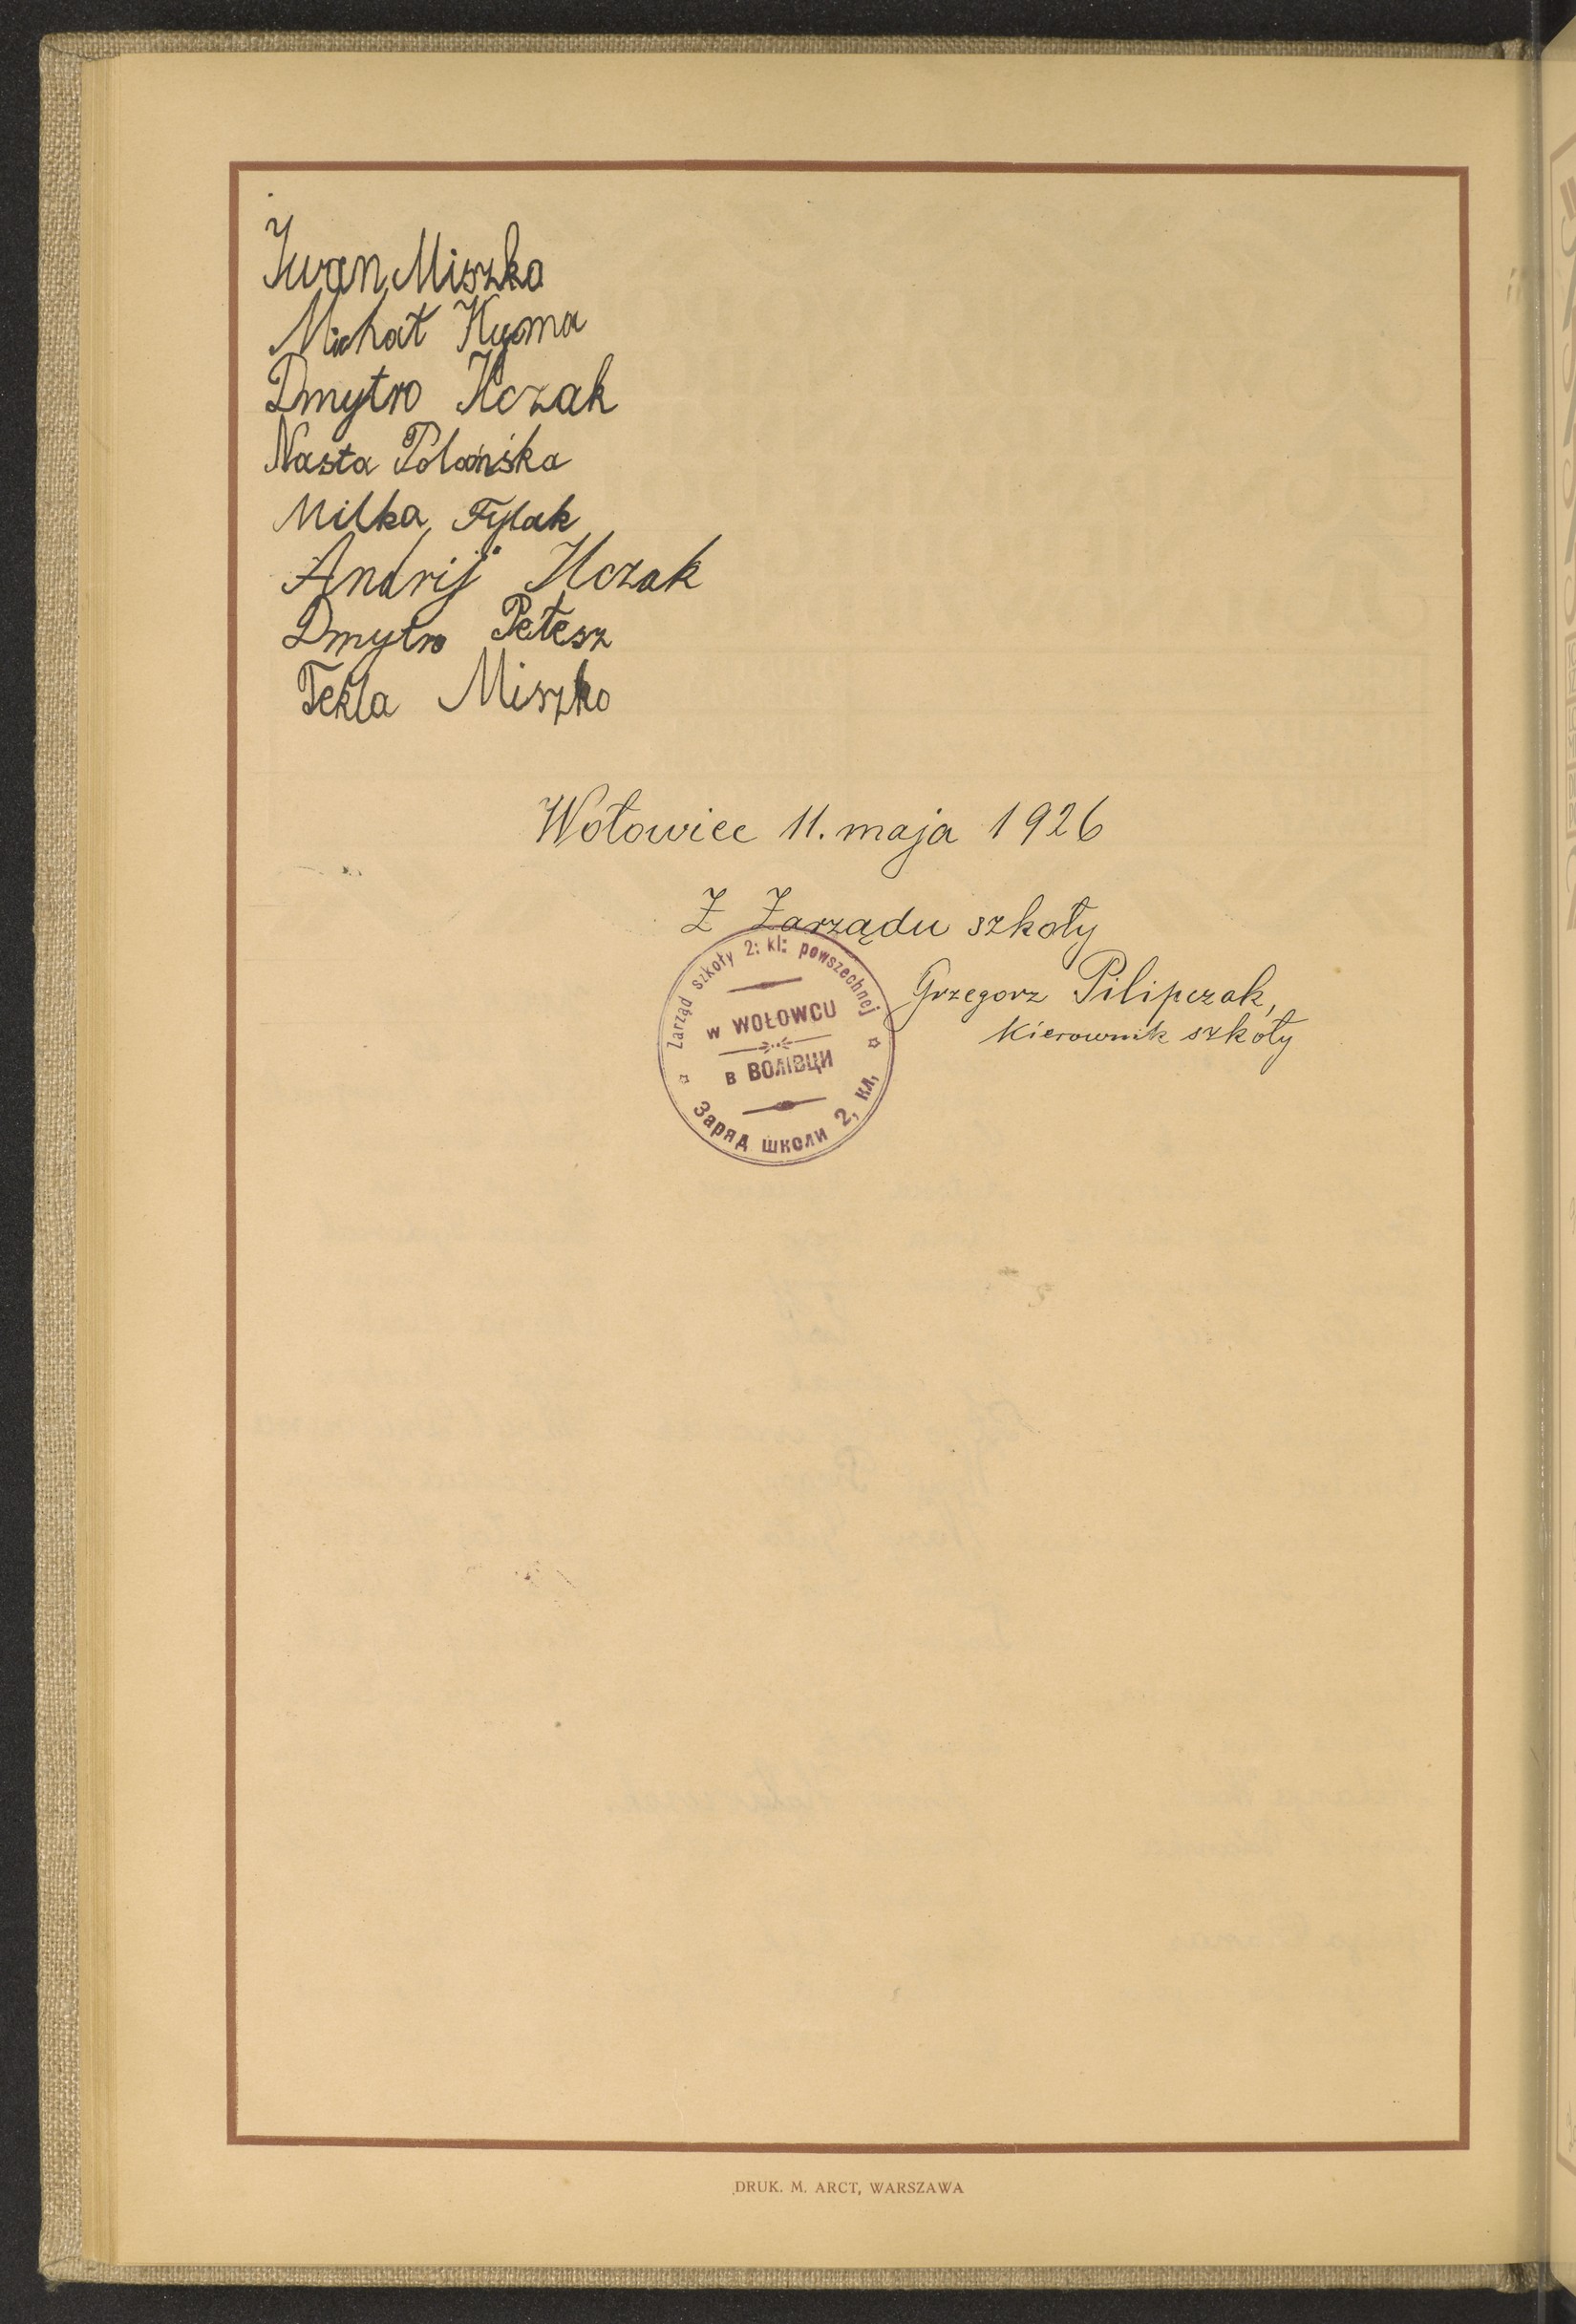 Iwan Miszko
Michał Hyoma
Dmytro Ilczak
Nasta Polańska
Milka Fylak
Andrij Ilczak
Dmytro Petesz
Tekla Miszko
Wołowiec 11. maja 1926
Z Zarządu szkoły
Grzegorz Pilipczak,
Kierownik szkoły
Zarząd szkoły 2: kl: powszechnej
w WOŁOWCU
в ВОЛІВЦИ
Заряд школи 2, кл,
DRUK. M. ARCT, WARSZAWA